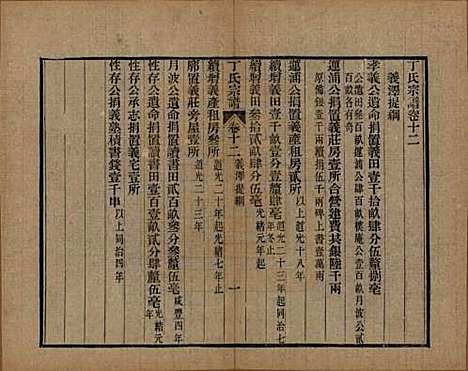 丁氏宗譜卷十二
義澤提綱
孝義公遺命捐置義田壹千拾畝肆分伍釐捌毫
蓮浦公捐置義莊房壹所台營建費共銀陸千兩
蓮浦公捐置義產租房貳所 以上道光十八年
續置義田壹千畝壹分壹釐肆毫 道光二十三年起同治七年冬止
續置義田叁拾貳畝肆分伍毫 光緒元年起
丁氏宗譜 卷十二 義澤提綱 一
續置義產租房叁所 道光二十年起光緒七年止
廓置義莊旁屋壹所 道光二十三年
月波公遺命捐置讀書田貳百畝叁分叁釐伍毫 咸豐四年
性存公遺命捐置讀書田壹百壹畝貳分肆釐伍毫 光緒元年
性存公承志捐置義宅壹所
性存公捐義塾積書錢壹千串 以上同治四年